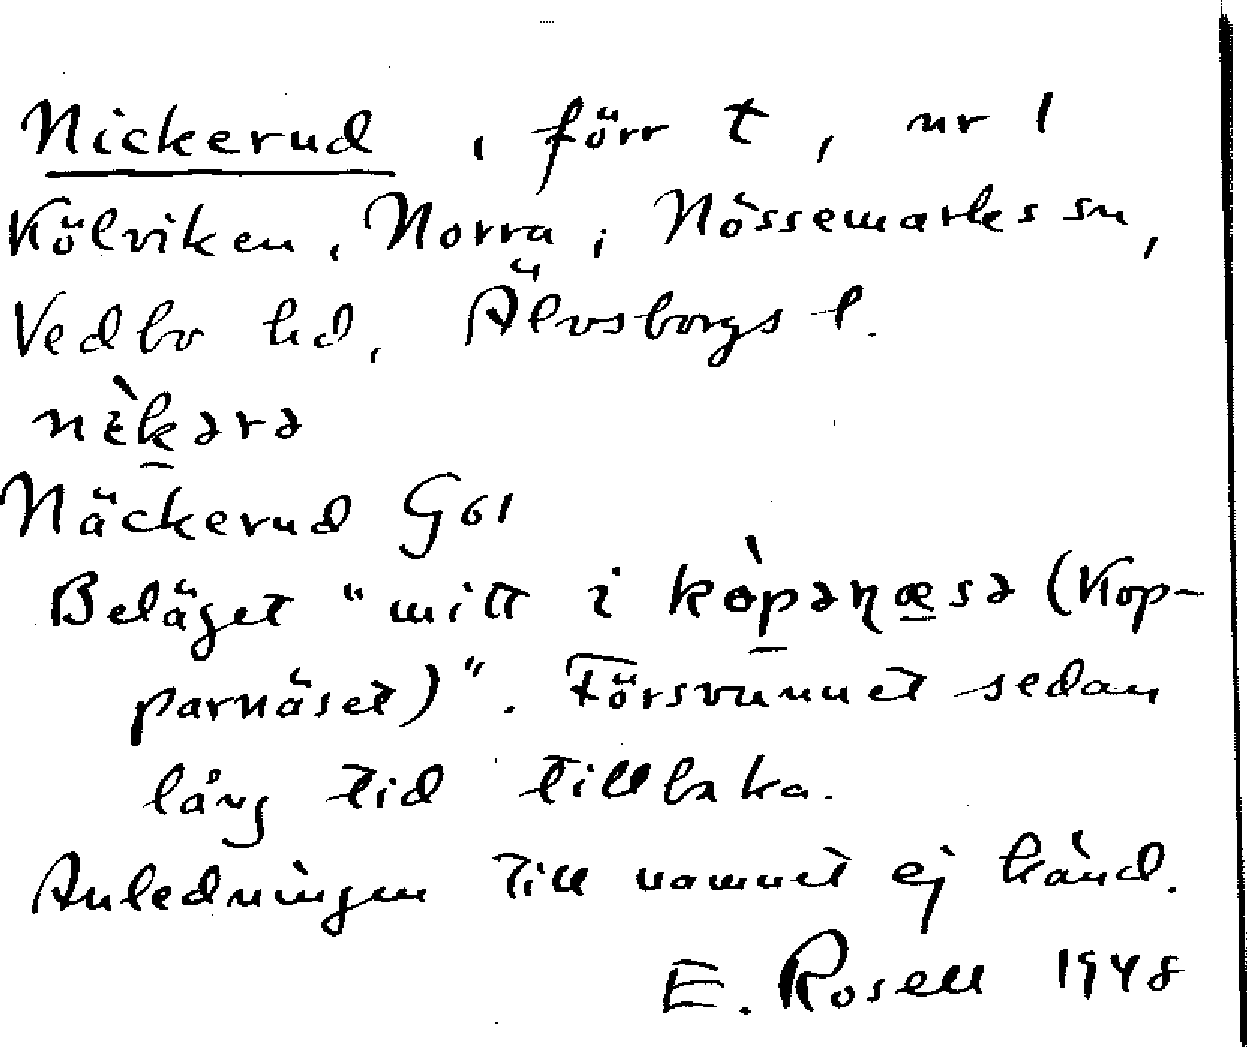 Nickerud, förr t, nr 1
Kölviken, Norra, Nössemarks sn,
Vedbo hd, Älvsborgs l.
nɛ̀k̠ərə
Näckerud G 61
Beläget "mitt i kòp̠əɳæsə (Kop-
parnäset)". Försvunnet sedan
lång tid tillbaka.
Anledningen till namnet ej känd.
E. Rosell 1948